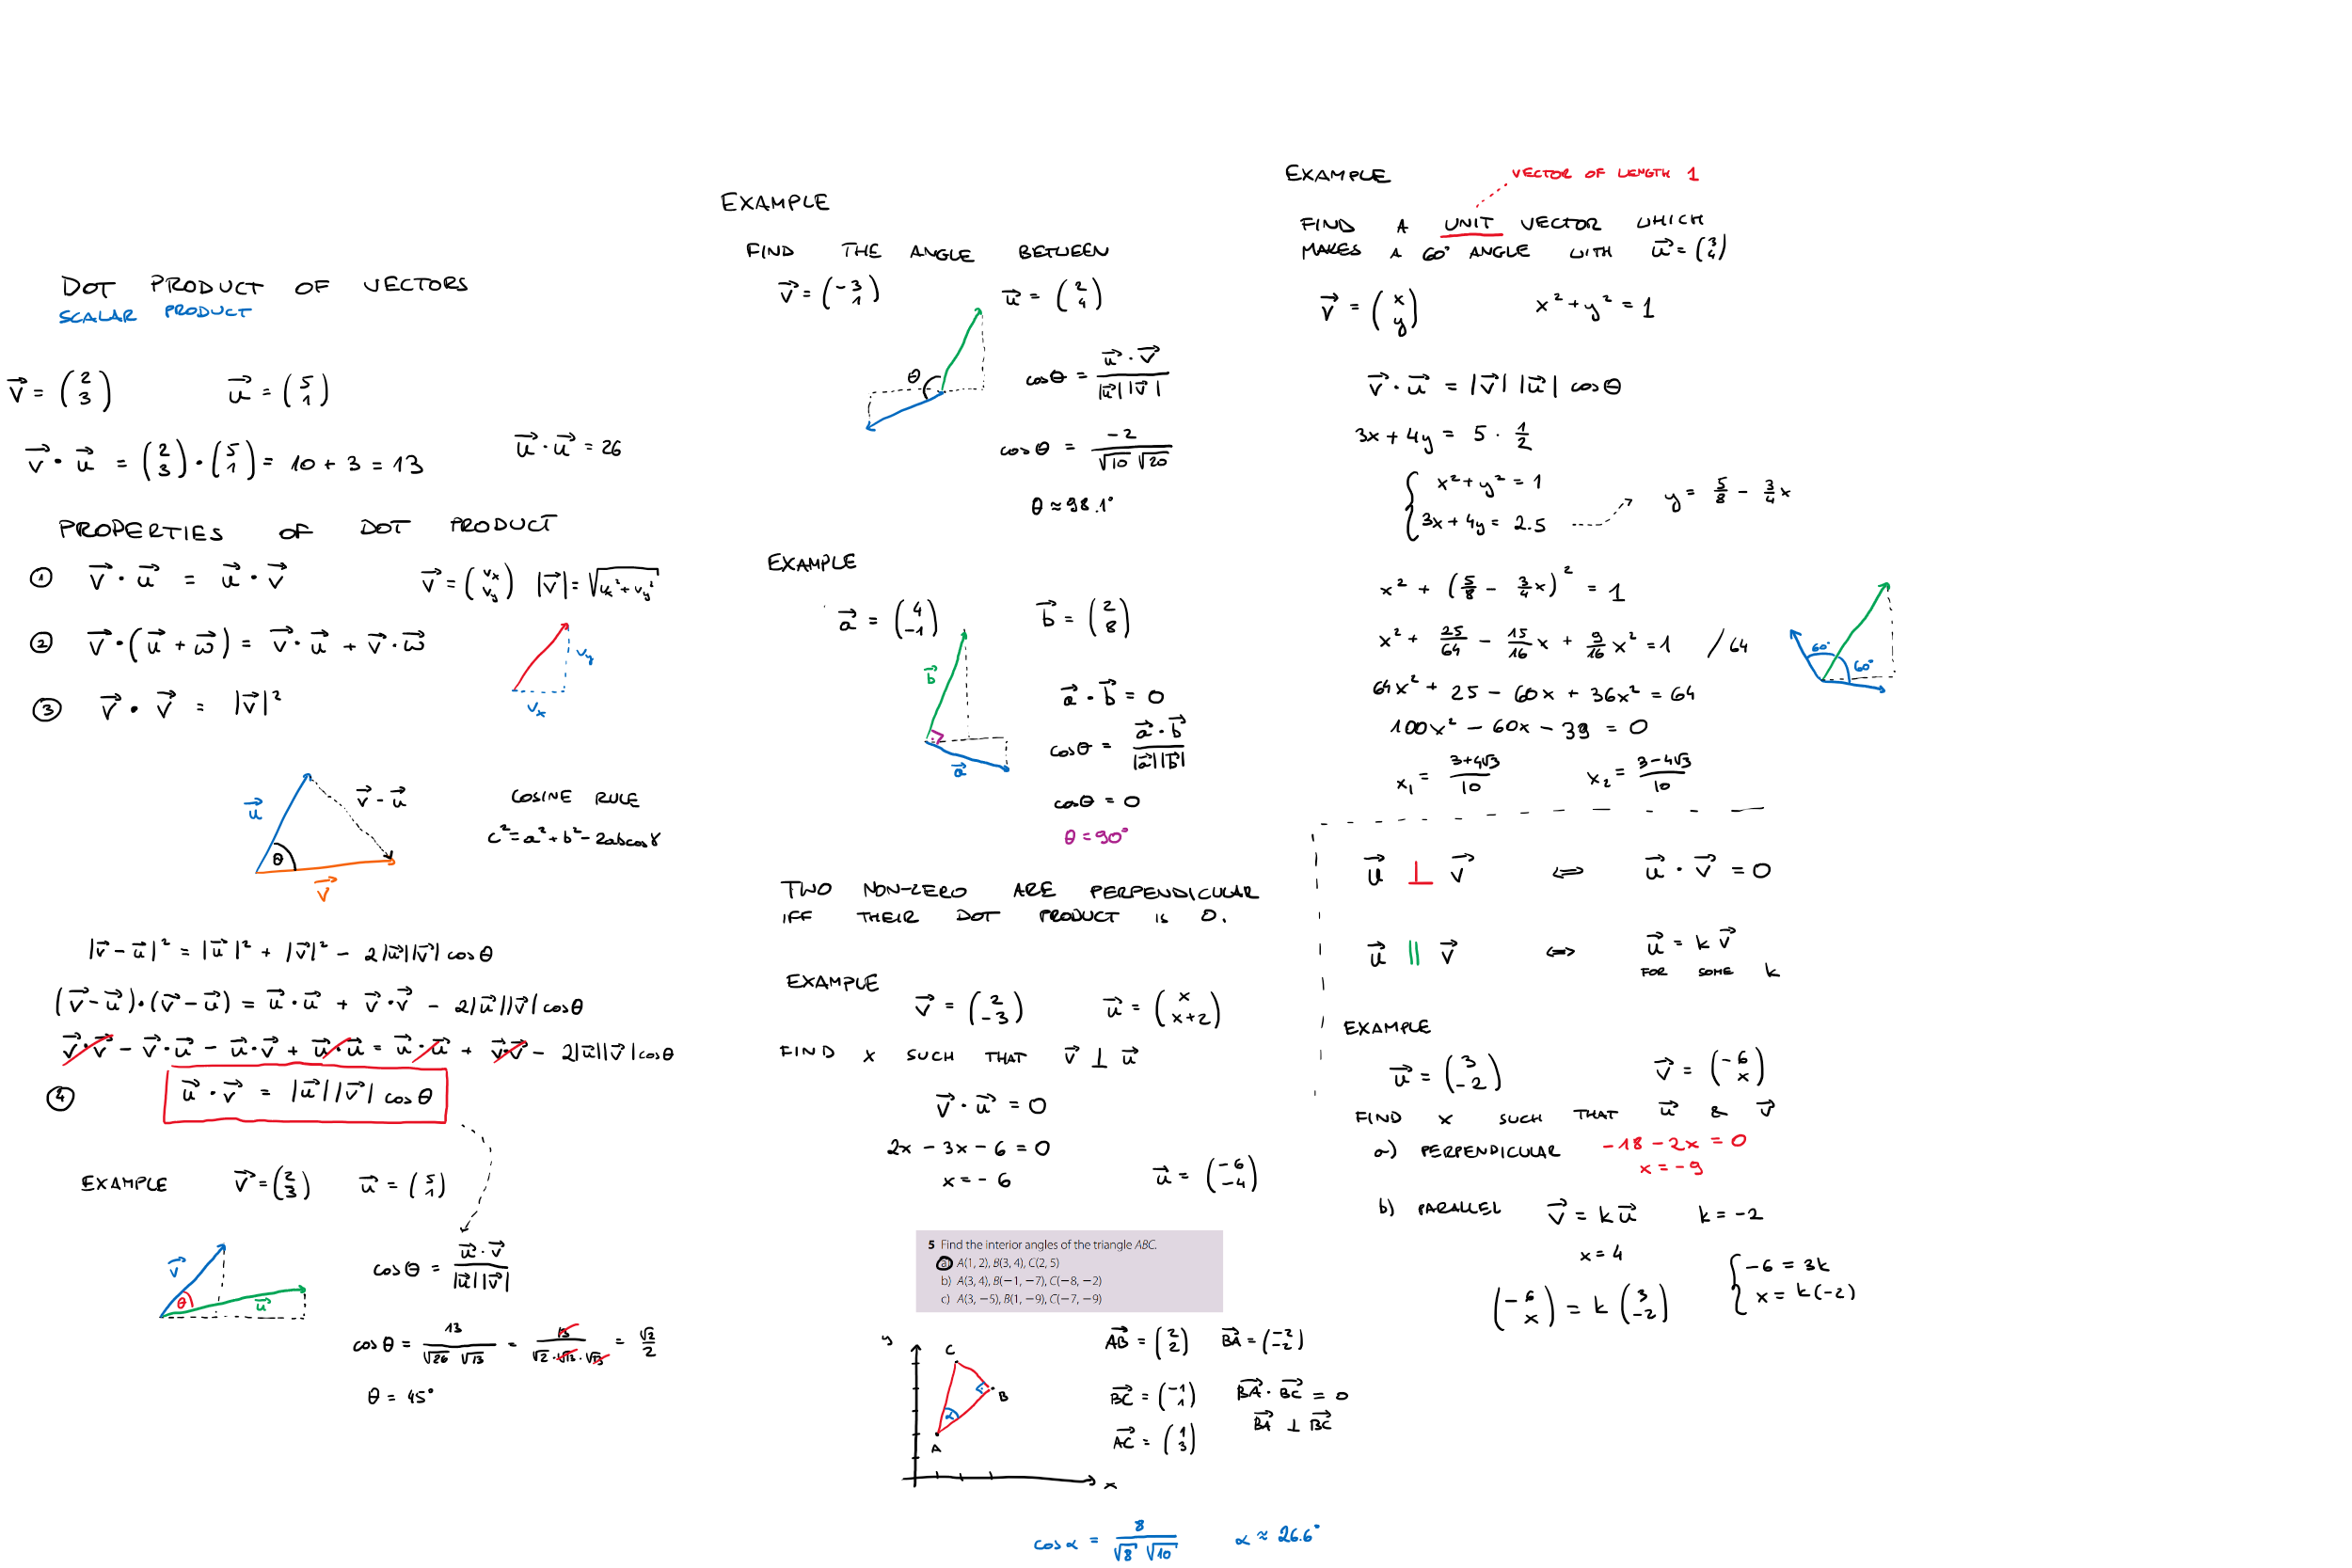 DOT PRODUCT OF VECTORS
SCALAR PRODUCT
v⃗ = (2 3) u⃗ = (5 1)
v⃗ · u⃗ = (2 3) · (5 1) = 10 + 3 = 13 u⃗ · u⃗ = 26
PROPERTIES OF DOT PRODUCT
① v⃗ · u⃗ = u⃗ · v⃗ v⃗ = (vx vy) |v⃗| = √(vx² + vy²)
② v⃗ · (u⃗ + w⃗) = v⃗ · u⃗ + v⃗ · w⃗
vy
③ v⃗ · v⃗ = |v⃗|²
vx
u⃗ v⃗ - u⃗
θ
v⃗
COSINE RULE
c² = a² + b² - 2abcosγ
|v⃗ - u⃗|² = |u⃗|² + |v⃗|² - 2|u⃗||v⃗| cosθ
(v⃗ - u⃗) · (v⃗ - u⃗) = u⃗ · u⃗ + v⃗ · v⃗ - 2|u⃗||v⃗| cosθ
v⃗ · v⃗ - v⃗ · u⃗ - u⃗ · v⃗ + u⃗ · u⃗ = u⃗ · u⃗ + v⃗ · v⃗ - 2|u⃗||v⃗| cosθ
④ u⃗ · v⃗ = |u⃗||v⃗| cosθ
EXAMPLE v⃗ = (2 3) u⃗ = (5 1)
v⃗ θ u⃗
cosθ = u⃗ · v⃗ / |u⃗||v⃗|
cosθ = 13 / √26 √13 = 13 / √2 · √13 · √13 = √2 / 2
θ = 45°
EXAMPLE
FIND THE ANGLE BETWEEN
v⃗ = (-3 1) u⃗ = (2 4)
θ
cosθ = u⃗ · v⃗ / |u⃗||v⃗|
cosθ = -2 / √10 √20
θ ≈ 98.1°
EXAMPLE
a⃗ = (4 -1) b⃗ = (2 8)
b⃗
a⃗
a⃗ · b⃗ = 0
cosθ = a⃗ · b⃗ / |a⃗||b⃗|
cosθ = 0
θ = 90°
TWO NON-ZERO ARE PERPENDICULAR
IFF THEIR DOT PRODUCT IS 0.
EXAMPLE
v⃗ = (2 -3) u⃗ = (x x+2)
FIND x SUCH THAT v⃗ ⊥ u⃗
v⃗ · u⃗ = 0
2x - 3x - 6 = 0
x = -6 u⃗ = (-6 -4)
5 Find the interior angles of the triangle ABC.
a) A(1, 2), B(3, 4), C(2, 5)
b) A(3, 4), B(−1, −7), C(−8, −2)
c) A(3, −5), B(1, −9), C(−7, −9)
y
C
B
α
A
x
AB⃗ = (2 2) BA⃗ = (-2 -2)
BC⃗ = (-1 1) BA⃗ · BC⃗ = 0
BA⃗ ⊥ BC⃗
AC⃗ = (1 3)
cosα = 8 / √8 √10 α ≈ 26.6°
EXAMPLE
VECTOR OF LENGTH 1
FIND A UNIT VECTOR WHICH
MAKES A 60° ANGLE WITH u⃗ = (3 4)
v⃗ = (x y) x² + y² = 1
v⃗ · u⃗ = |v⃗||u⃗| cosθ
3x + 4y = 5 · 1/2
x² + y² = 1
3x + 4y = 2.5 y = 5/8 - 3/4 x
x² + (5/8 - 3/4 x)² = 1
x² + 25/64 - 15/16 x + 9/16 x² = 1 / 64
64x² + 25 - 60x + 36x² = 64
100x² - 60x - 39 = 0
x₁ = 3+4√3 / 10 x₂ = 3-4√3 / 10
60° 60°
u⃗ ⊥ v⃗ ⇔ u⃗ · v⃗ = 0
u⃗ || v⃗ ⇔ u⃗ = k v⃗
FOR SOME k
EXAMPLE
u⃗ = (3 -2) v⃗ = (-6 x)
FIND x SUCH THAT u⃗ & v⃗
a) PERPENDICULAR -18 - 2x = 0
x = -9
b) PARALLEL v⃗ = k u⃗ k = -2
x = 4
(-6 x) = k (3 -2)
-6 = 3k
x = k(-2)